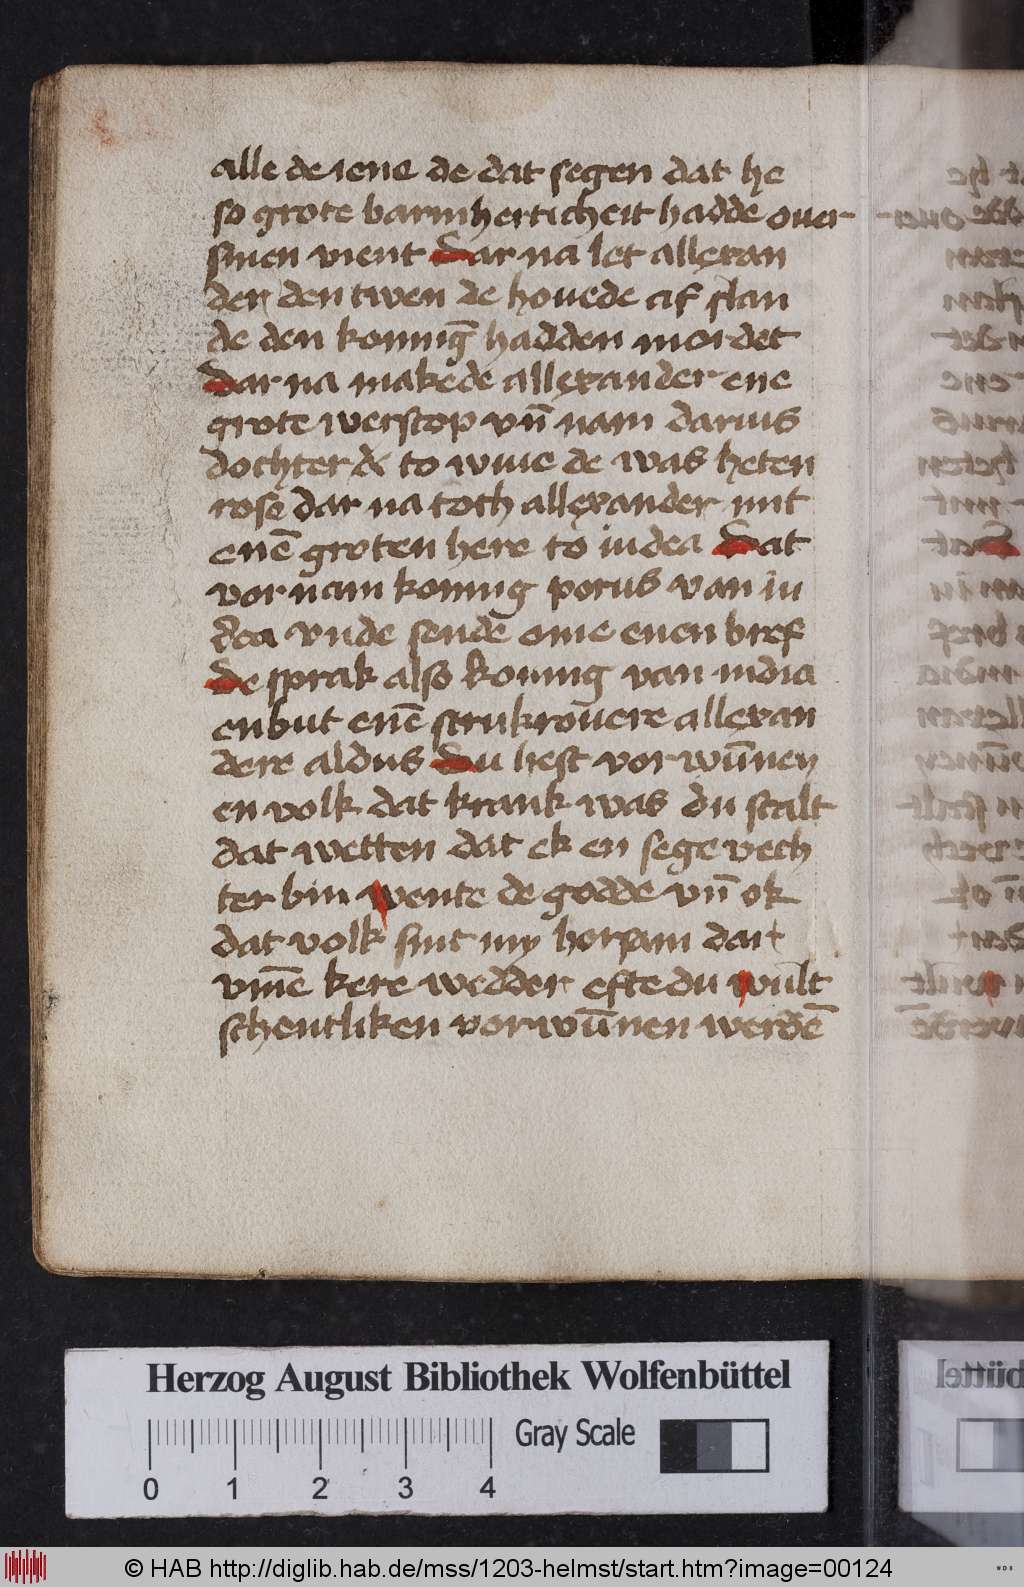 alle de iene de dat segen dat he
so grote barmherticheit hadde ouer
sinen vient Dar na let allexan
der den twen de houede af slan
de den konnīg hadden mordet
Dar na makede allexander ene
grote werscop vn̄ nam darius
dochter to wiue de was heten
rose dar na toch allexander mit
enē groten here to iudea Dat
vornam konnig porus van in
dea vnde sende ome enen bref
De sprak also konnig van india
enbut enē strukrouere allexan
dere aldus Du hest vorwūnen
en volk dat krank was du scalt
dat wetten dat ek en segevech
ter bin wente de godde vn̄ ok
dat volk sint my horsam dar
vmē kere wedder efte du wult
schentliken vorwūnen werdē
Herzog August Bibliothek Wolfenbüttel
Gray Scale
0 1 2 3 4
© HAB http://diglib.hab.de/mss/1203-helmst/start.htm?image=00124